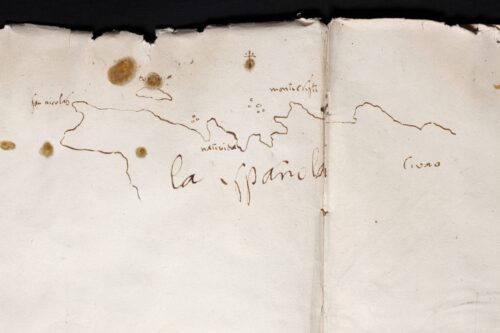 san nicolas
monte cristi
natividad
la española
civao